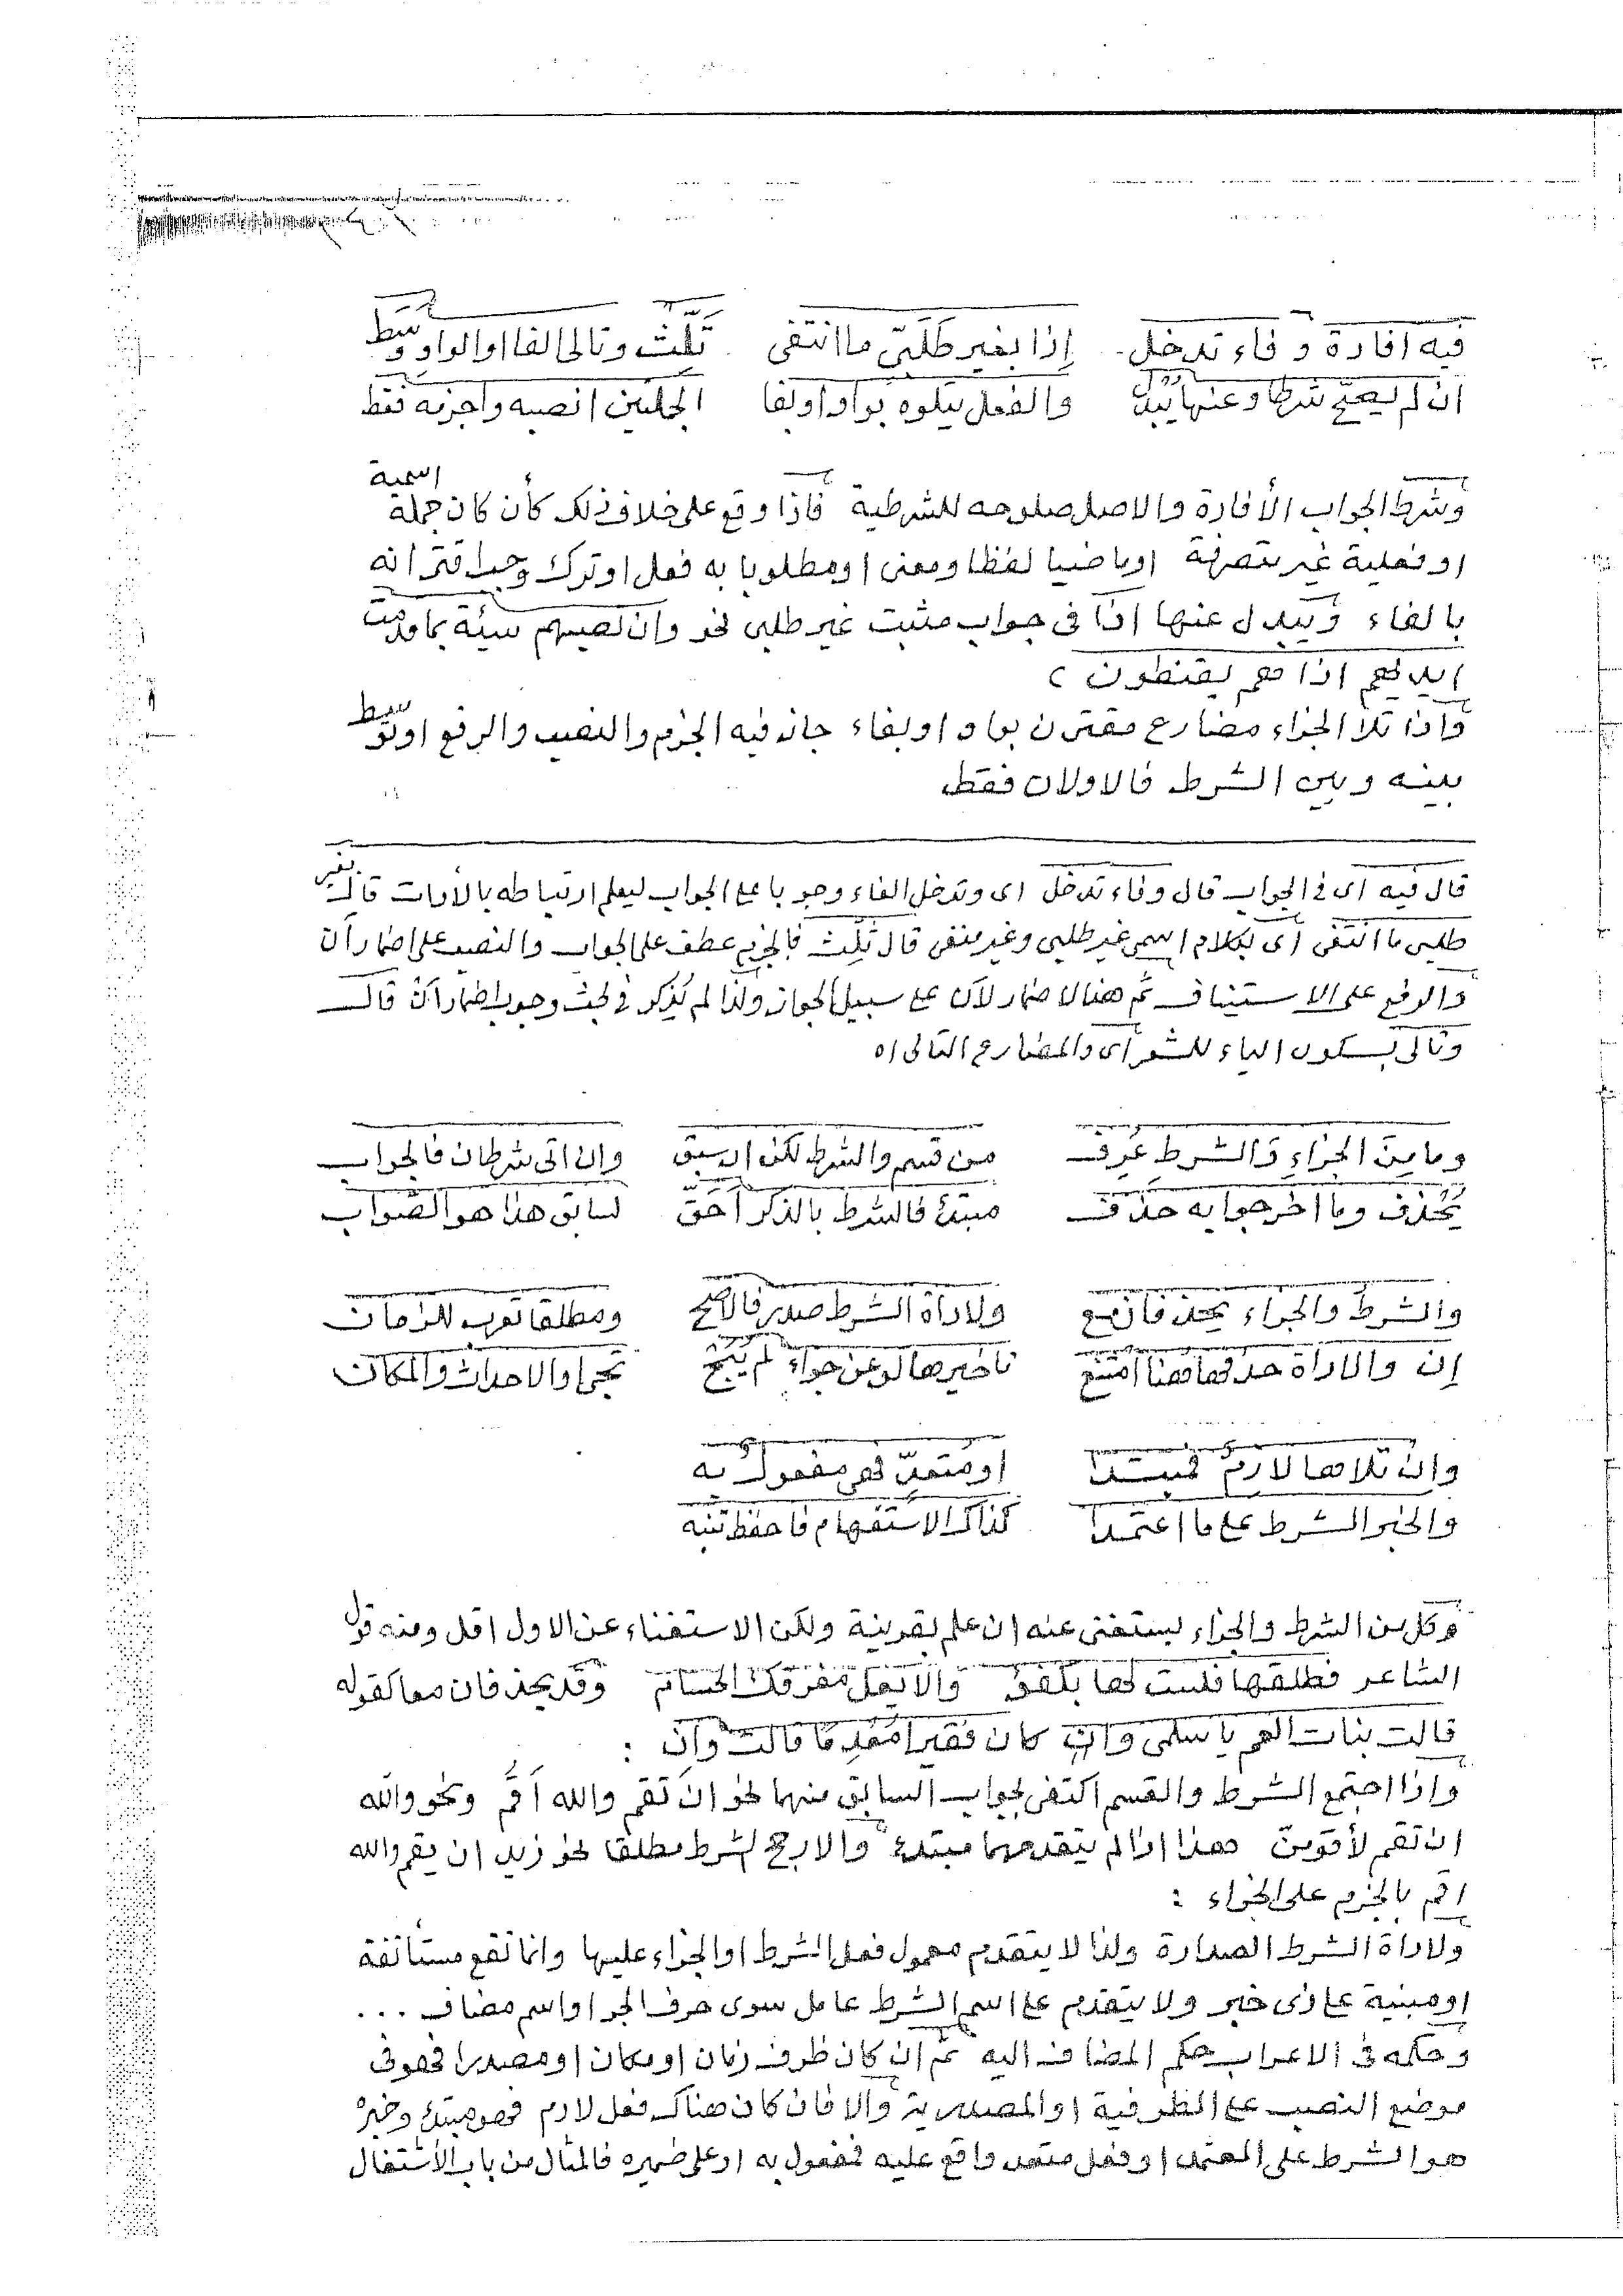 فيه افادة وفاء تدخل إذا بغير طلبيّ ما انتفى ثَلِّث وتالى الفا او الواو وسط
ان لم يصحّ شرطا وعنها تُبْدَل والفعل يتلوه بواو او بفا الجملتين انصبه واجزمه فقط
وشرط الجواب الأفادة والاصل صلوحه للشرطية فاذا وقع على خلاف ذلك كأن كان جملة اسمية
او فعلية غير متصرفة اوماضيا لفظا ومعنى او مطلوبا به فعل او ترك وجب اقترانه
بالفاء وتبدل عنها اذا فى جواب مثبت غير طلبى نحو وان تصبهم سيئة بما قدمت
ايديهم اذا هم يقنطون ؟
واذا تلا الجزاء مضارع مقترن بواو او بفاء جاز فيه الجزم والنصب والرفع او توسط
بينه وبين الشرط فالاولان فقط
قال فيه اى فى الجواب قال وفاء تدخل اى وتدخل الفاء وجوبا على الجواب ليعلم ارتباطه بالأدات قال بغير
طلبى ما انتفى اى بكلام اسمى غير طلبى وغير منفى قال ثَلِّث فالجزم عطف على الجواب والنصب على اضمار أن
والرفع على الاستيناف ثم هنا الاضمار لأن على سبيل الجواز ولذا لم يُذكر فى بحث وجوب اضمار أن قال
وتالى بسكون الياء للشعر اى والمضارع التالى اه
وما من الجزاءِ والشرط عُرِف من قسم والشرط لكن ان سبق وان اتى شرطان فالجواب
يُحْذف وما اخر جوابه حذف مبتدئ فالشرط بالذكر أحَقّ لسابق هذا هو الصواب
والشرط والجزاء يحذفان مع ولاداة الشرط صدر فالاصح ومطلقا تعرب للزمان
إن والاداة حذفها هنا امتنع تاخيرها لو عن جواء لم يُبَحْ تجى او الاحداث والمكان
وان تلاها لازمٌ فمبتدا او متعدّ فهى مفعول به
والخبر الشرط على ما اعتمدا كذاك الاستفهام فاحفظ تنبه
وكل من الشرط والجزاء يستغنى عنه ان علم بقرينة ولكن الاستغناء عن الاول اقل ومنه قول
الشاعر فطلقها فلست لها بكفؤ والا يعل مفرقك الحسام وقد يحذفان معا كقوله
قالت بنات العم يا سلمى وان كان فقيرا معدما قالت وان :
واذا اجتمع الشرط والقسم اكتفى بجواب السابق منهما نحو ان تقم والله أقم ونحو والله
ان تقم لأقومن هذا اذا لم يتقدمهما مبتدئ والا رجح الشرط مطلقا نحو زيد ان يقم والله
اقم بالجزم على الجزاء :
ولاداة الشرط الصدارة ولذا لا يتقدم معمول فعل الشرط او الجزاء عليها وانما تقع مستأنفة
او مبنية على ذى خبر ولا يتقدم على اسم الشرط عامل سوى حرف الجر او اسم مضاف ...
وحكمه فى الاعراب حكم المضاف اليه ثم ان كان ظرف زمان او مكان او مصدرا فهو فى
موضع النصب على الظرفية او المصدرية والا فان كان هناك فعل لازم فهو مبتدئ وخبره
هو الشرط على المعتمد او فعل متعد واقع عليه فمفعول به او على ضميره فالمثال من باب الأشتغال